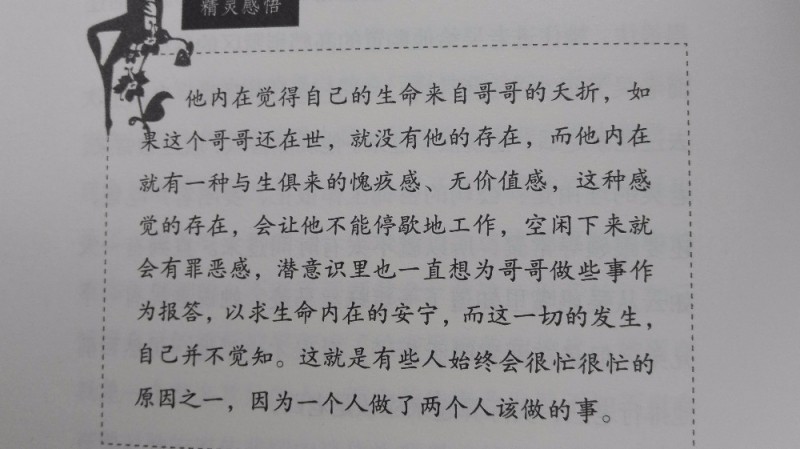 精灵感悟
他内在觉得自己的生命来自哥哥的夭折，如
果这个哥哥还在世，就没有他的存在，而他内在
就有一种与生俱来的愧疚感、无价值感，这种感
觉的存在，会让他不能停歇地工作，空闲下来就
会有罪恶感，潜意识里也一直想为哥哥做些事作
为报答，以求生命内在的安宁，而这一切的发生，
自己并不觉知。这就是有些人始终会很忙很忙的
原因之一，因为一个人做了两个人该做的事。